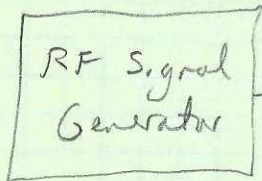 RF Signal
Generator